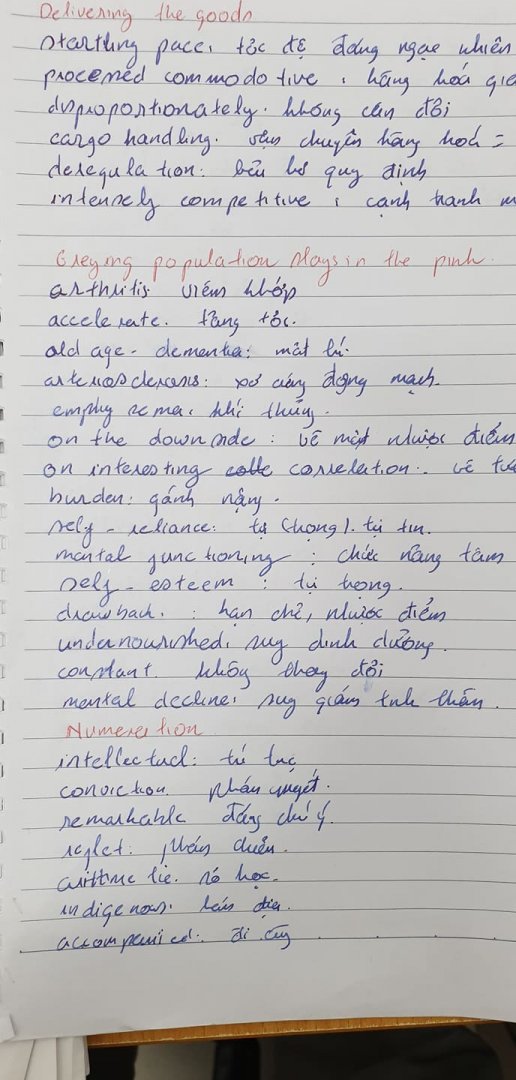 Delivering the goods
startling pace: tốc độ đáng ngạc nhiên
processed commodotive: hàng hoá gia
disproportionately. không cân đối
cargo handling. vận chuyển hàng hoá =
deregulation: bãi bỏ quy định
intensely competitive: cạnh tranh m
Greying population stays in the pink.
arthritis viêm khớp
accelerate. tăng tốc.
old age - dementia: mất trí.
arteriosclerosis: xơ cứng động mạch.
emphysema: khí thũng.
on the downside: về mặt nhược điểm
on interesting correlation:. về
burden: gánh nặng.
self - reliance: tự (trọng). tự tin.
mental functioning: chức năng tâm
self - esteem: tự trọng.
drawback.: hạn chế, nhược điểm
undernourished, suy dinh dưỡng.
constant. không thay đổi
mental decline, suy giảm tinh thần.
Numeration
intellectual: trí tuệ
conviction. phán quyết.
remarkable đáng chú ý.
reflet: phản chiếu.
arithmetic. số học.
indigenous. bản địa.
accompanied: đi